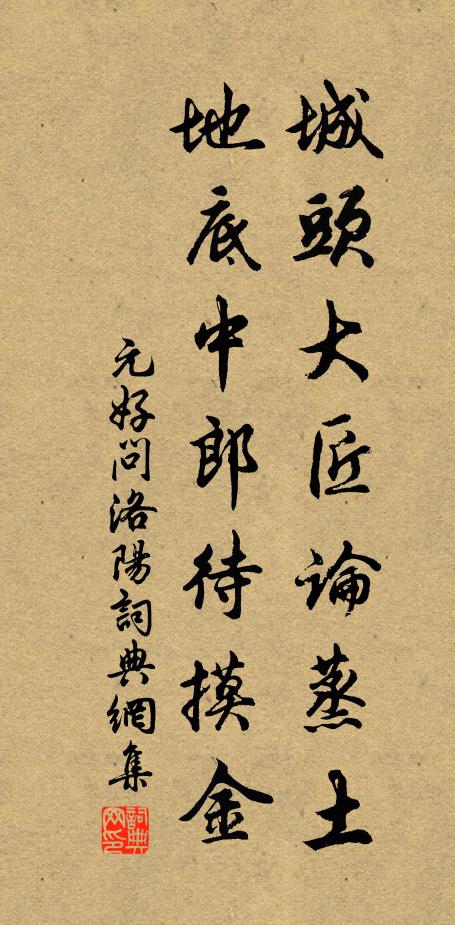 城頭大匠論蒸土
地底中郎待摸金
元好問洛陽詞典網集
詞典網印